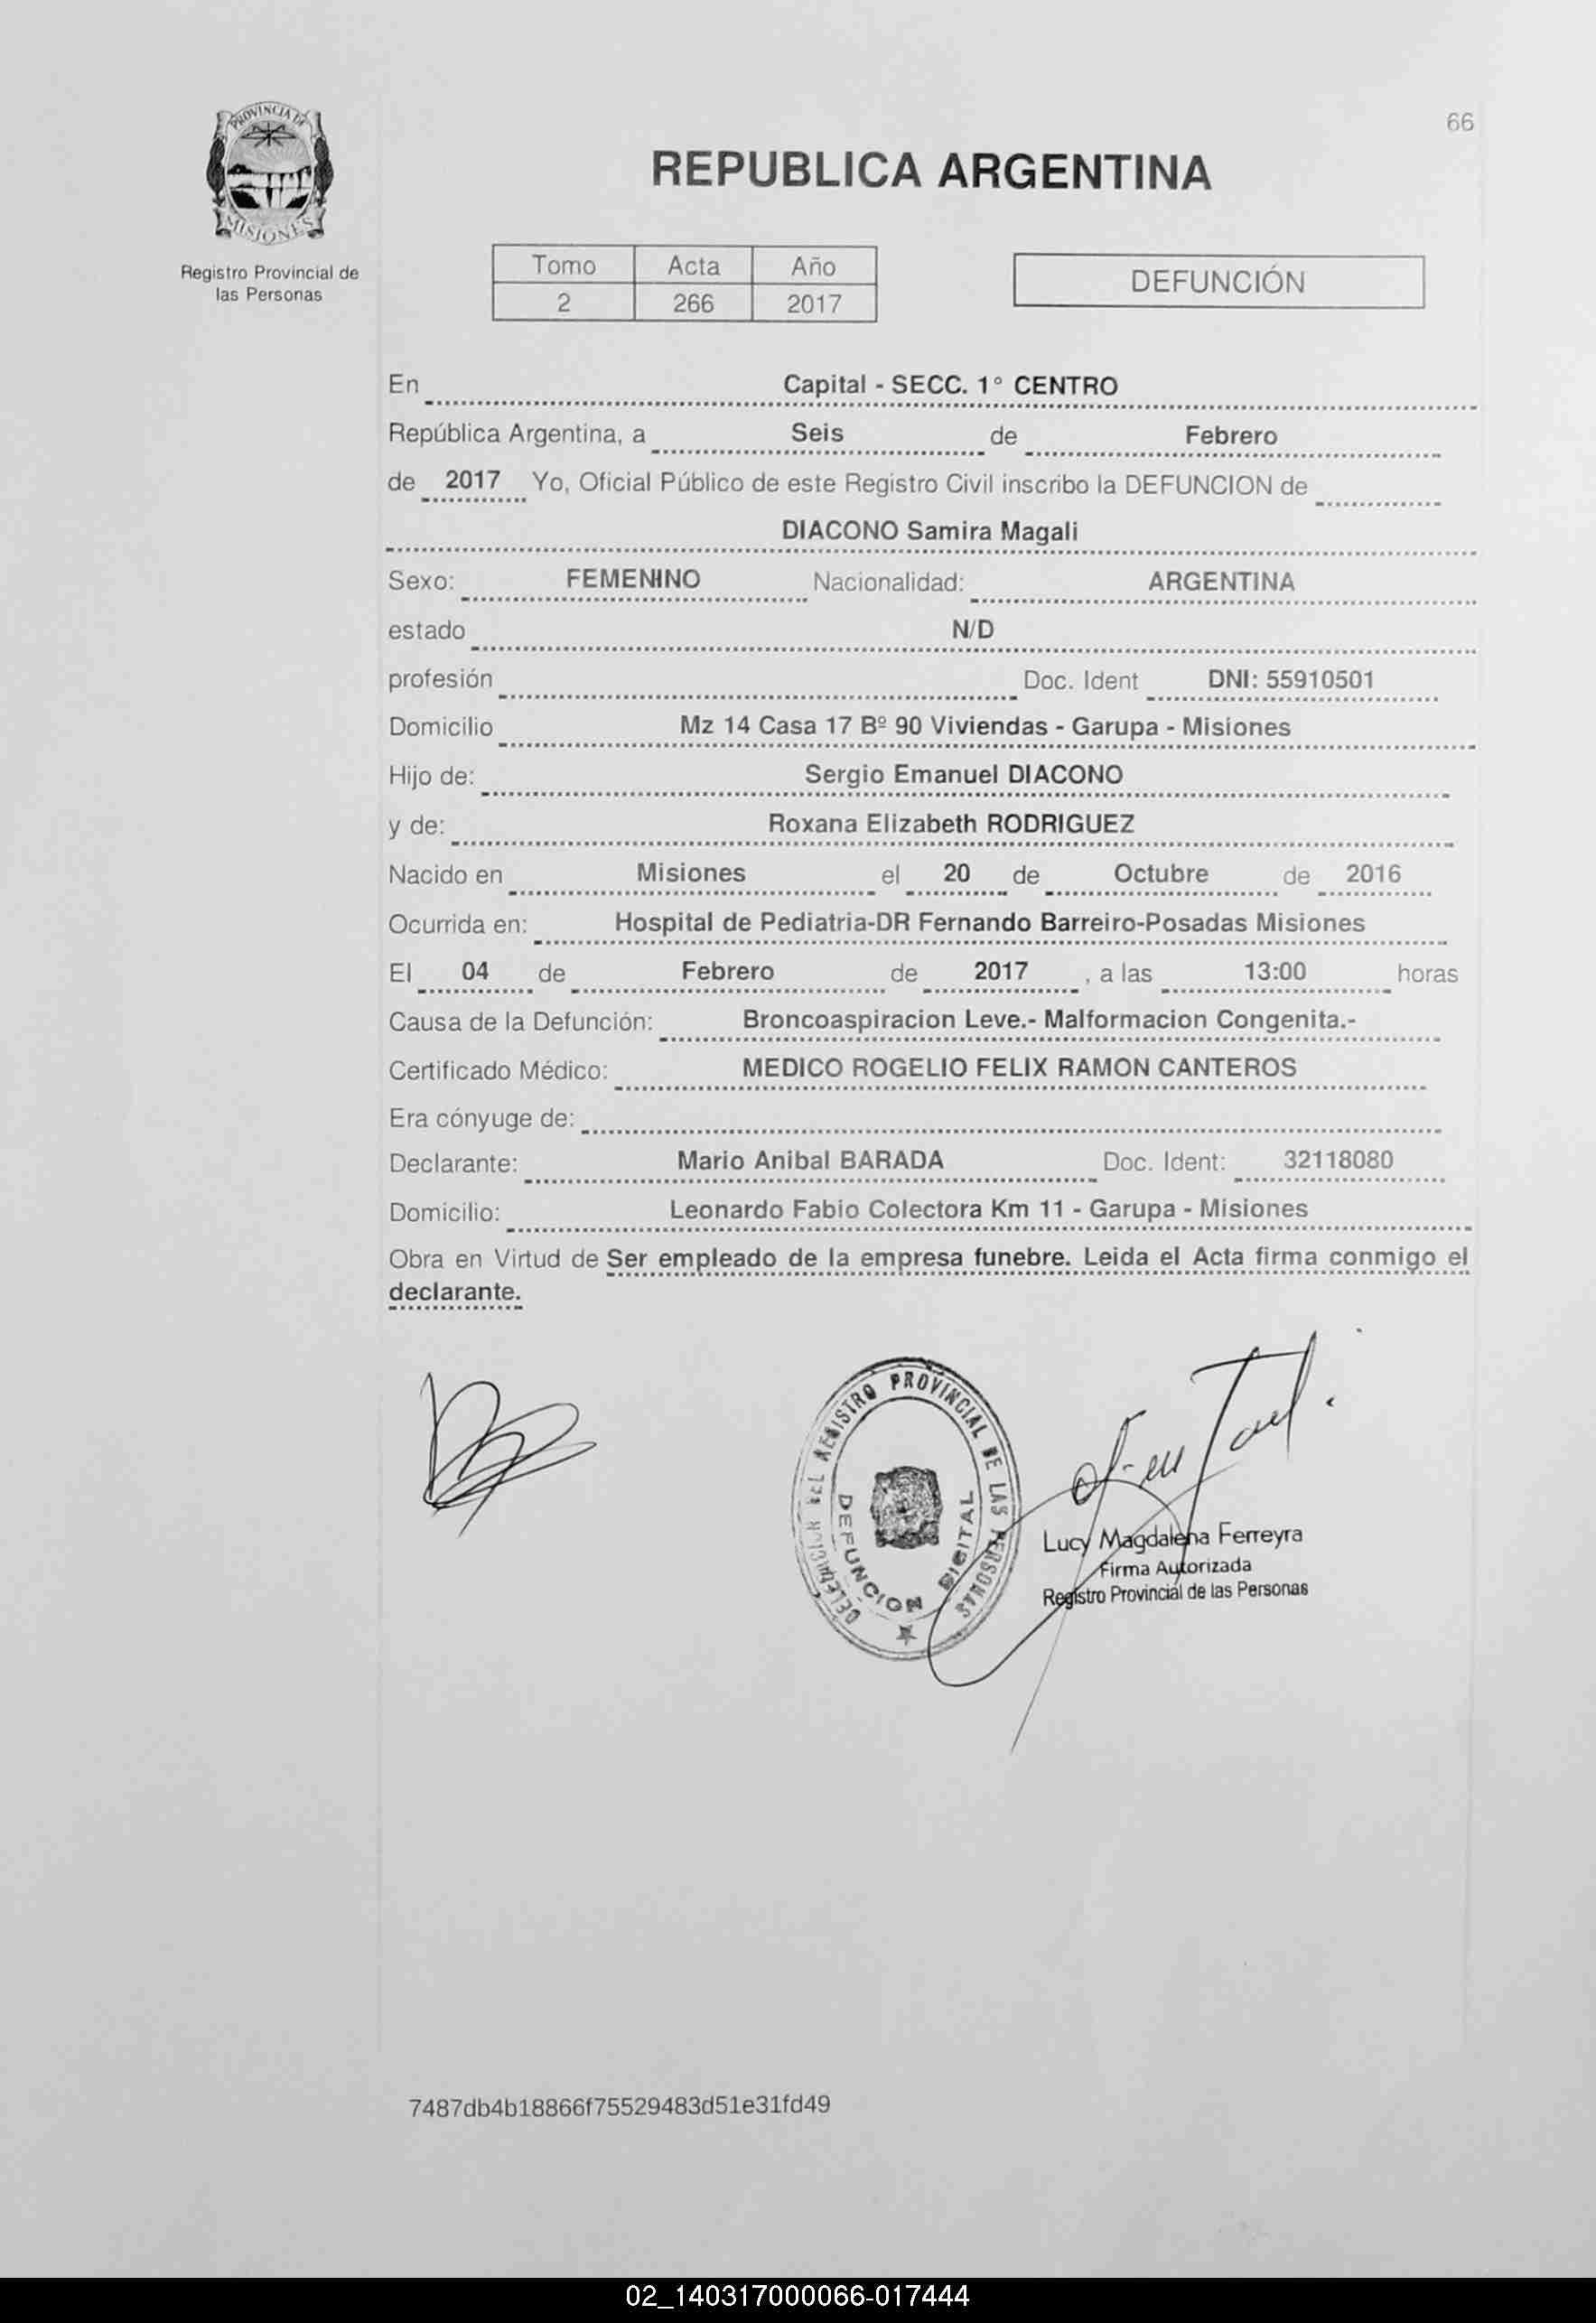 66
PROVINCIA DE
MISIONES
Registro Provincial de
las Personas
REPUBLICA ARGENTINA
Tomo Acta Año
2 266 2017
DEFUNCIÓN
En Capital - SECC. 1° CENTRO
República Argentina, a Seis de Febrero
de 2017 Yo, Oficial Público de este Registro Civil inscribo la DEFUNCION de
DIACONO Samira Magali
Sexo: FEMENINO Nacionalidad: ARGENTINA
estado N/D
profesión Doc. Ident DNI: 55910501
Domicilio Mz 14 Casa 17 Bº 90 Viviendas - Garupa - Misiones
Hijo de: Sergio Emanuel DIACONO
y de: Roxana Elizabeth RODRIGUEZ
Nacido en Misiones el 20 de Octubre de 2016
Ocurrida en: Hospital de Pediatria-DR Fernando Barreiro-Posadas Misiones
El 04 de Febrero de 2017 , a las 13:00 horas
Causa de la Defunción: Broncoaspiracion Leve.- Malformacion Congenita.-
Certificado Médico: MEDICO ROGELIO FELIX RAMON CANTEROS
Era cónyuge de:
Declarante: Mario Anibal BARADA Doc. Ident: 32118080
Domicilio: Leonardo Fabio Colectora Km 11 - Garupa - Misiones
Obra en Virtud de Ser empleado de la empresa funebre. Leida el Acta firma conmigo el
declarante.
DELEGACION DEL REGISTRO PROVINCIAL DE LAS PERSONAS
DEFUNCION DIGITAL
Lucy Magdalena Ferreyra
Firma Autorizada
Registro Provincial de las Personas
7487db4b18866f75529483d51e31fd49
02_140317000066-017444